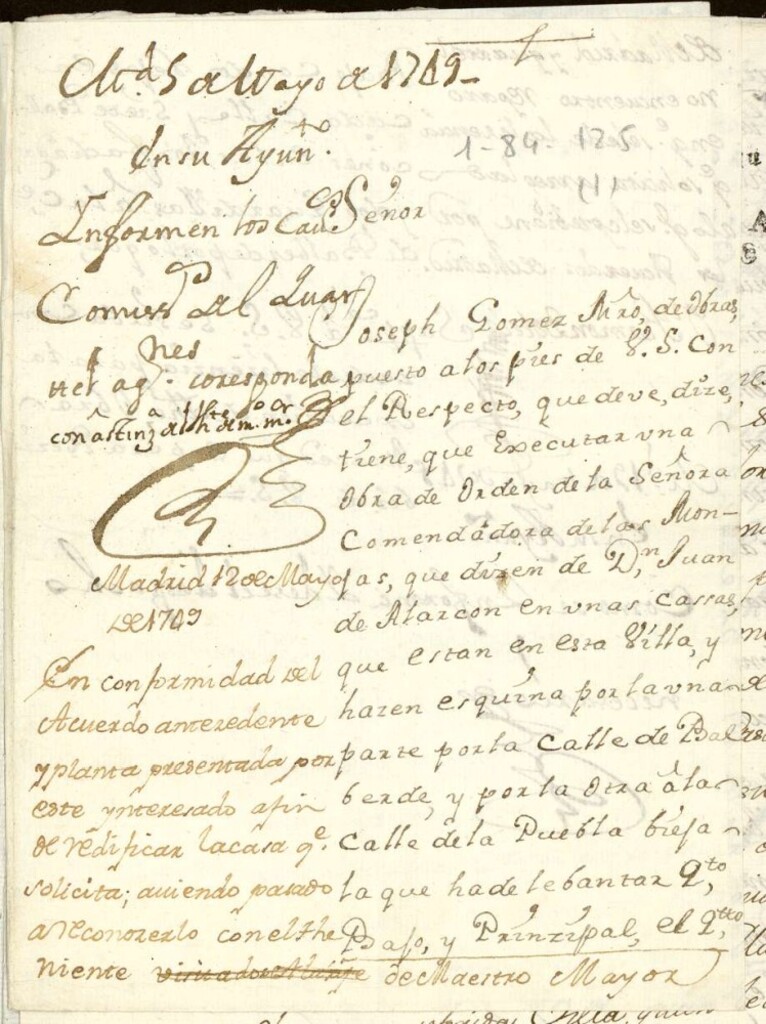 M.d 5 de Mayo de 1719
En su Ayun.to
1-84-125
Informen los Cav.os
Comiss.s del Quar
tel ag.nes coresponda
con astinz.a del th.te de m.o m.or
Madrid 12 de Mayo
de 1719
En conformidad del
Acuerdo antezedente
y planta presentada por
este ynteresado a fin
de redificar la casa q.e
solicita; auiendo pasado
a reconozerlo con el the
niente de Maestro Mayor
Señor
Joseph Gomez Mro, de obras,
puesto a los pies de V. S. Con
el Respecto, que deve, dize,
tiene, que Executar vna
obra de orden de la Señora
Comendadora de las Mon-
jas, que dizen de D.n Juan
de Alarcon en vnas cassas,
que estan en esta Villa, y
hazen esquina por la vna
parte por la Calle de Bal
berde, y por la otra a la
Calle de la Puebla bieja
la que ha de lebantar Q.to
Bajo, y Prinzipal, el Q.tto